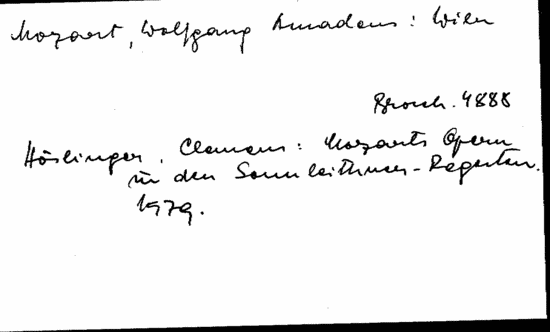 Mozart, Wolfgang Amadeus: Wien
Brosch. 4888
Höslinger, Clemens: Mozarts Opern
in den Sonnleithner-Regesten.
1979.